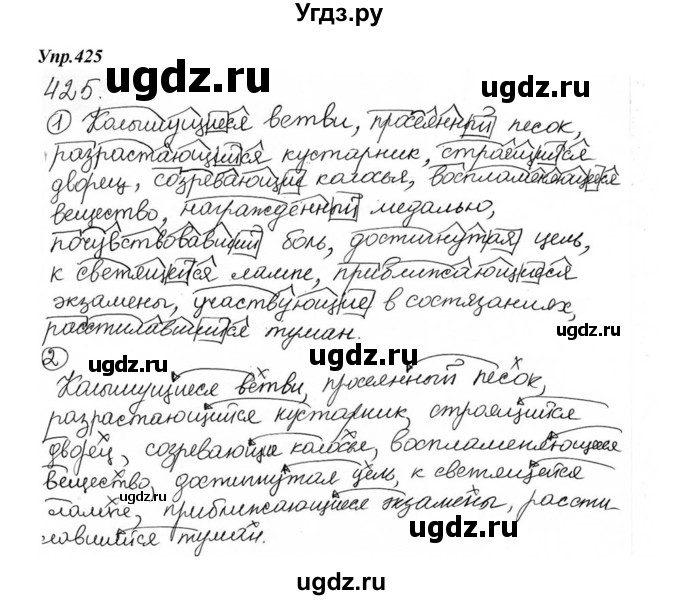 Угдз.ру
Упр.425
425.
ugdz.ru ugdz.ru
1 Колышущиеся ветви, просеянный песок,
разрастающийся кустарник, строящийся
дворец, созревающие колосья, воспламеняющееся
вещество, награждённый медалью,
почувствовавший боль, достигнутая цель,
к светящейся лампе, приближающиеся
экзамены, участвующие в состязаниях,
расстилавшийся туман.
2
ugdz.ru ugdz.ru
Колышущиеся ветви, просеянный песок,
разрастающийся кустарник, строящийся
дворец, созревающие колосья, воспламеняющееся
вещество, достигнутая цель, к светящейся
ugdz.ru
лампе, приближающиеся экзамены, рассти
лавшийся туман.
ugdz.ru
ugdz.ru